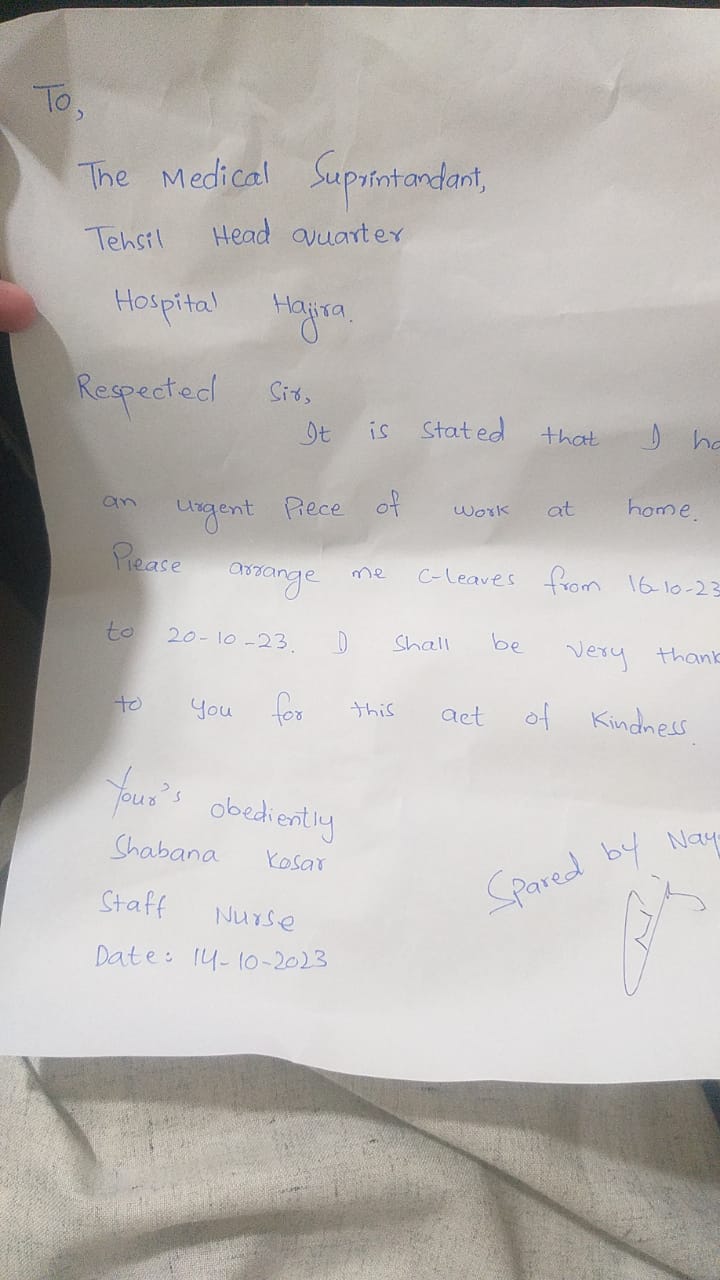 To,
The Medical Suprintandant,
Tehsil Head Quarter
Hospital Hajira.
Respected Sir,
It is stated that I ha
an urgent Piece of work at home.
Please arrange me C-leaves from 16-10-23
to 20-10-23. I Shall be very thank
to you for this act of Kindness.
Your's obediently
Shabana Kosar
Staff Nurse
Date: 14-10-2023
Spared by Nay